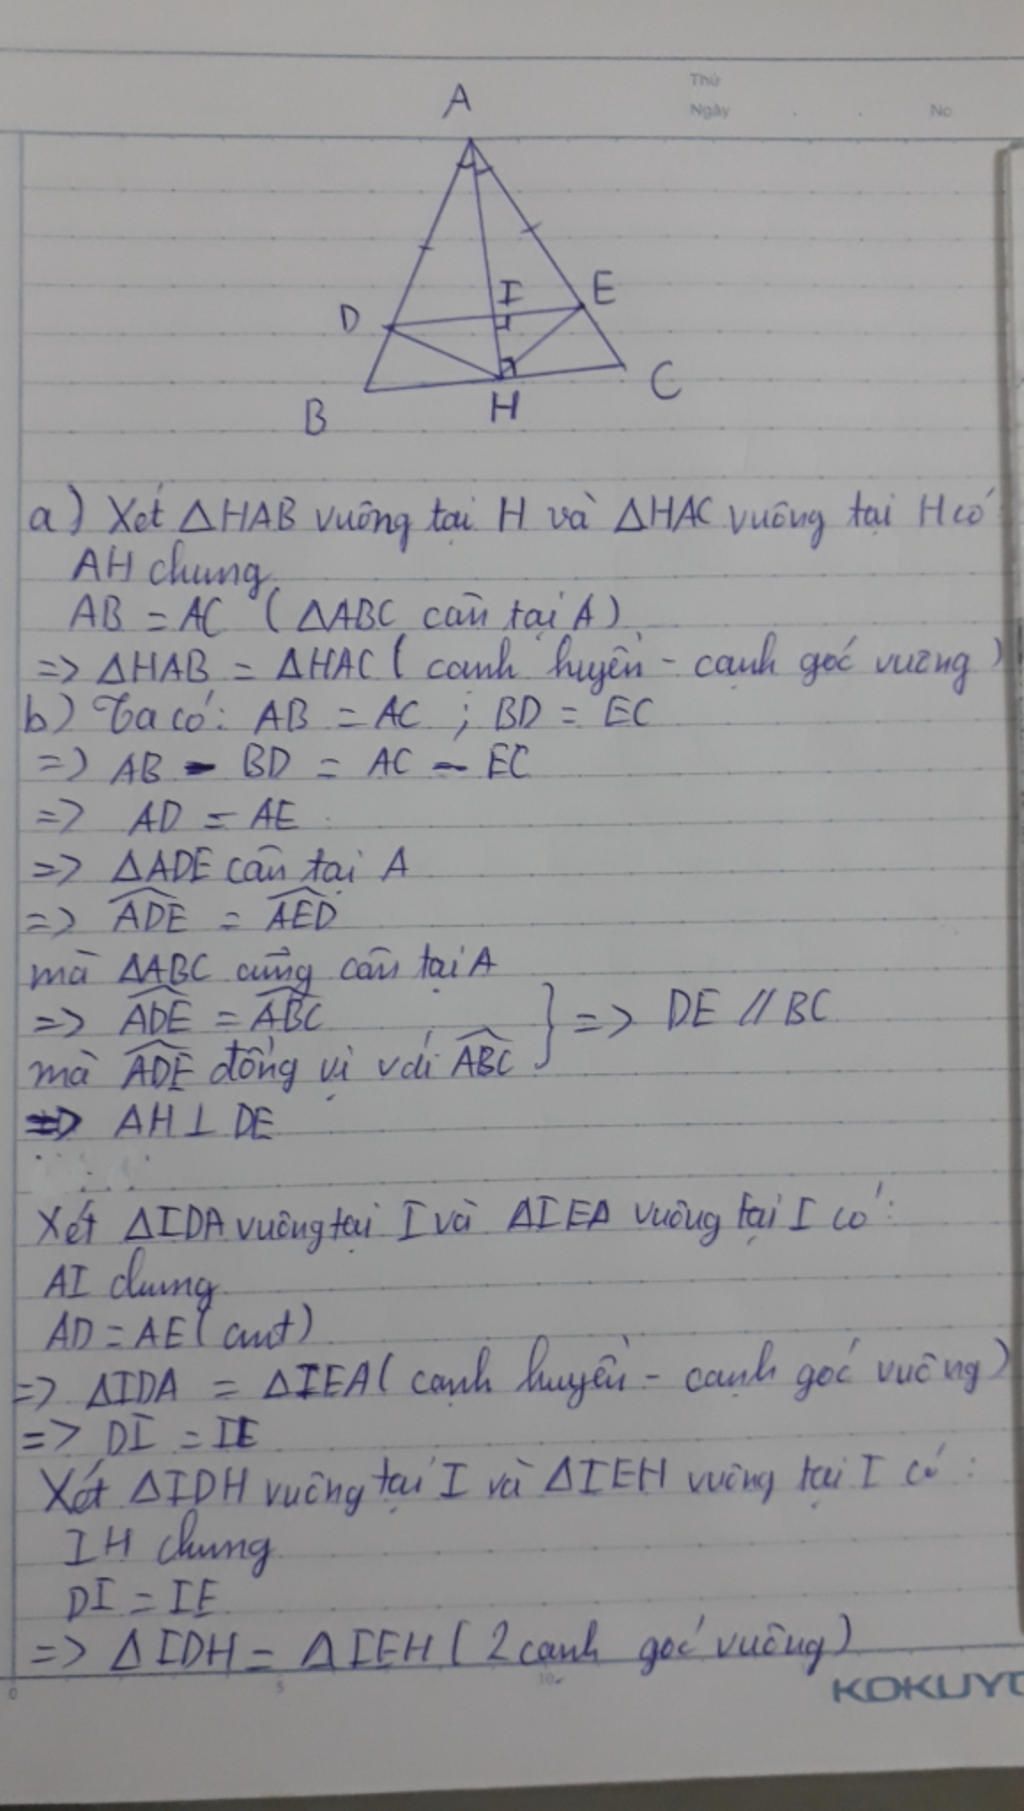 Thứ
Ngày . . No
A
I
E
D
B
H
C
a) Xét ΔHAB vuông tại H và ΔHAC vuông tại H có
AH chung
AB = AC (ΔABC cân tại A)
=> ΔHAB = ΔHAC (cạnh huyền - cạnh góc vuông)
b) Ta có: AB = AC ; BD = EC
=> AB - BD = AC - EC
=> AD = AE
=> ΔADE cân tại A
=> \widehat{ADE} = \widehat{AED}
mà ΔABC cũng cân tại A
=> \widehat{ADE} = \widehat{ABC} } => DE // BC
mà \widehat{ADE} đồng vị với \widehat{ABC}
=> AH ⊥ DE
Xét ΔIDA vuông tại I và ΔIEA vuông tại I có:
AI chung
AD = AE (cmt)
=> ΔIDA = ΔIEA (cạnh huyền - cạnh góc vuông)
=> DI = IE
Xét ΔIDH vuông tại I và ΔIEH vuông tại I có:
IH chung
DI = IE
=> ΔIDH = ΔIEH (2 cạnh góc vuông)
0 5 10
KOKUYO